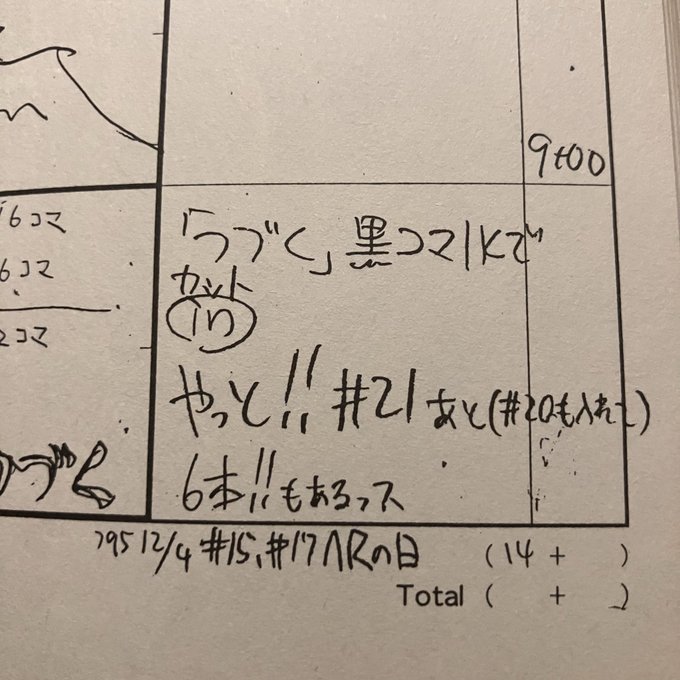 9+00
16コマ
6コマ
2コマ
「つづく」黒コマ1Kで
カット
in
やっと!! #21 あと(#20も入れて)
6本!!もあるっス
つづく
'95 12/4 #15、#17 ARの日 (14 + )
Total ( + )